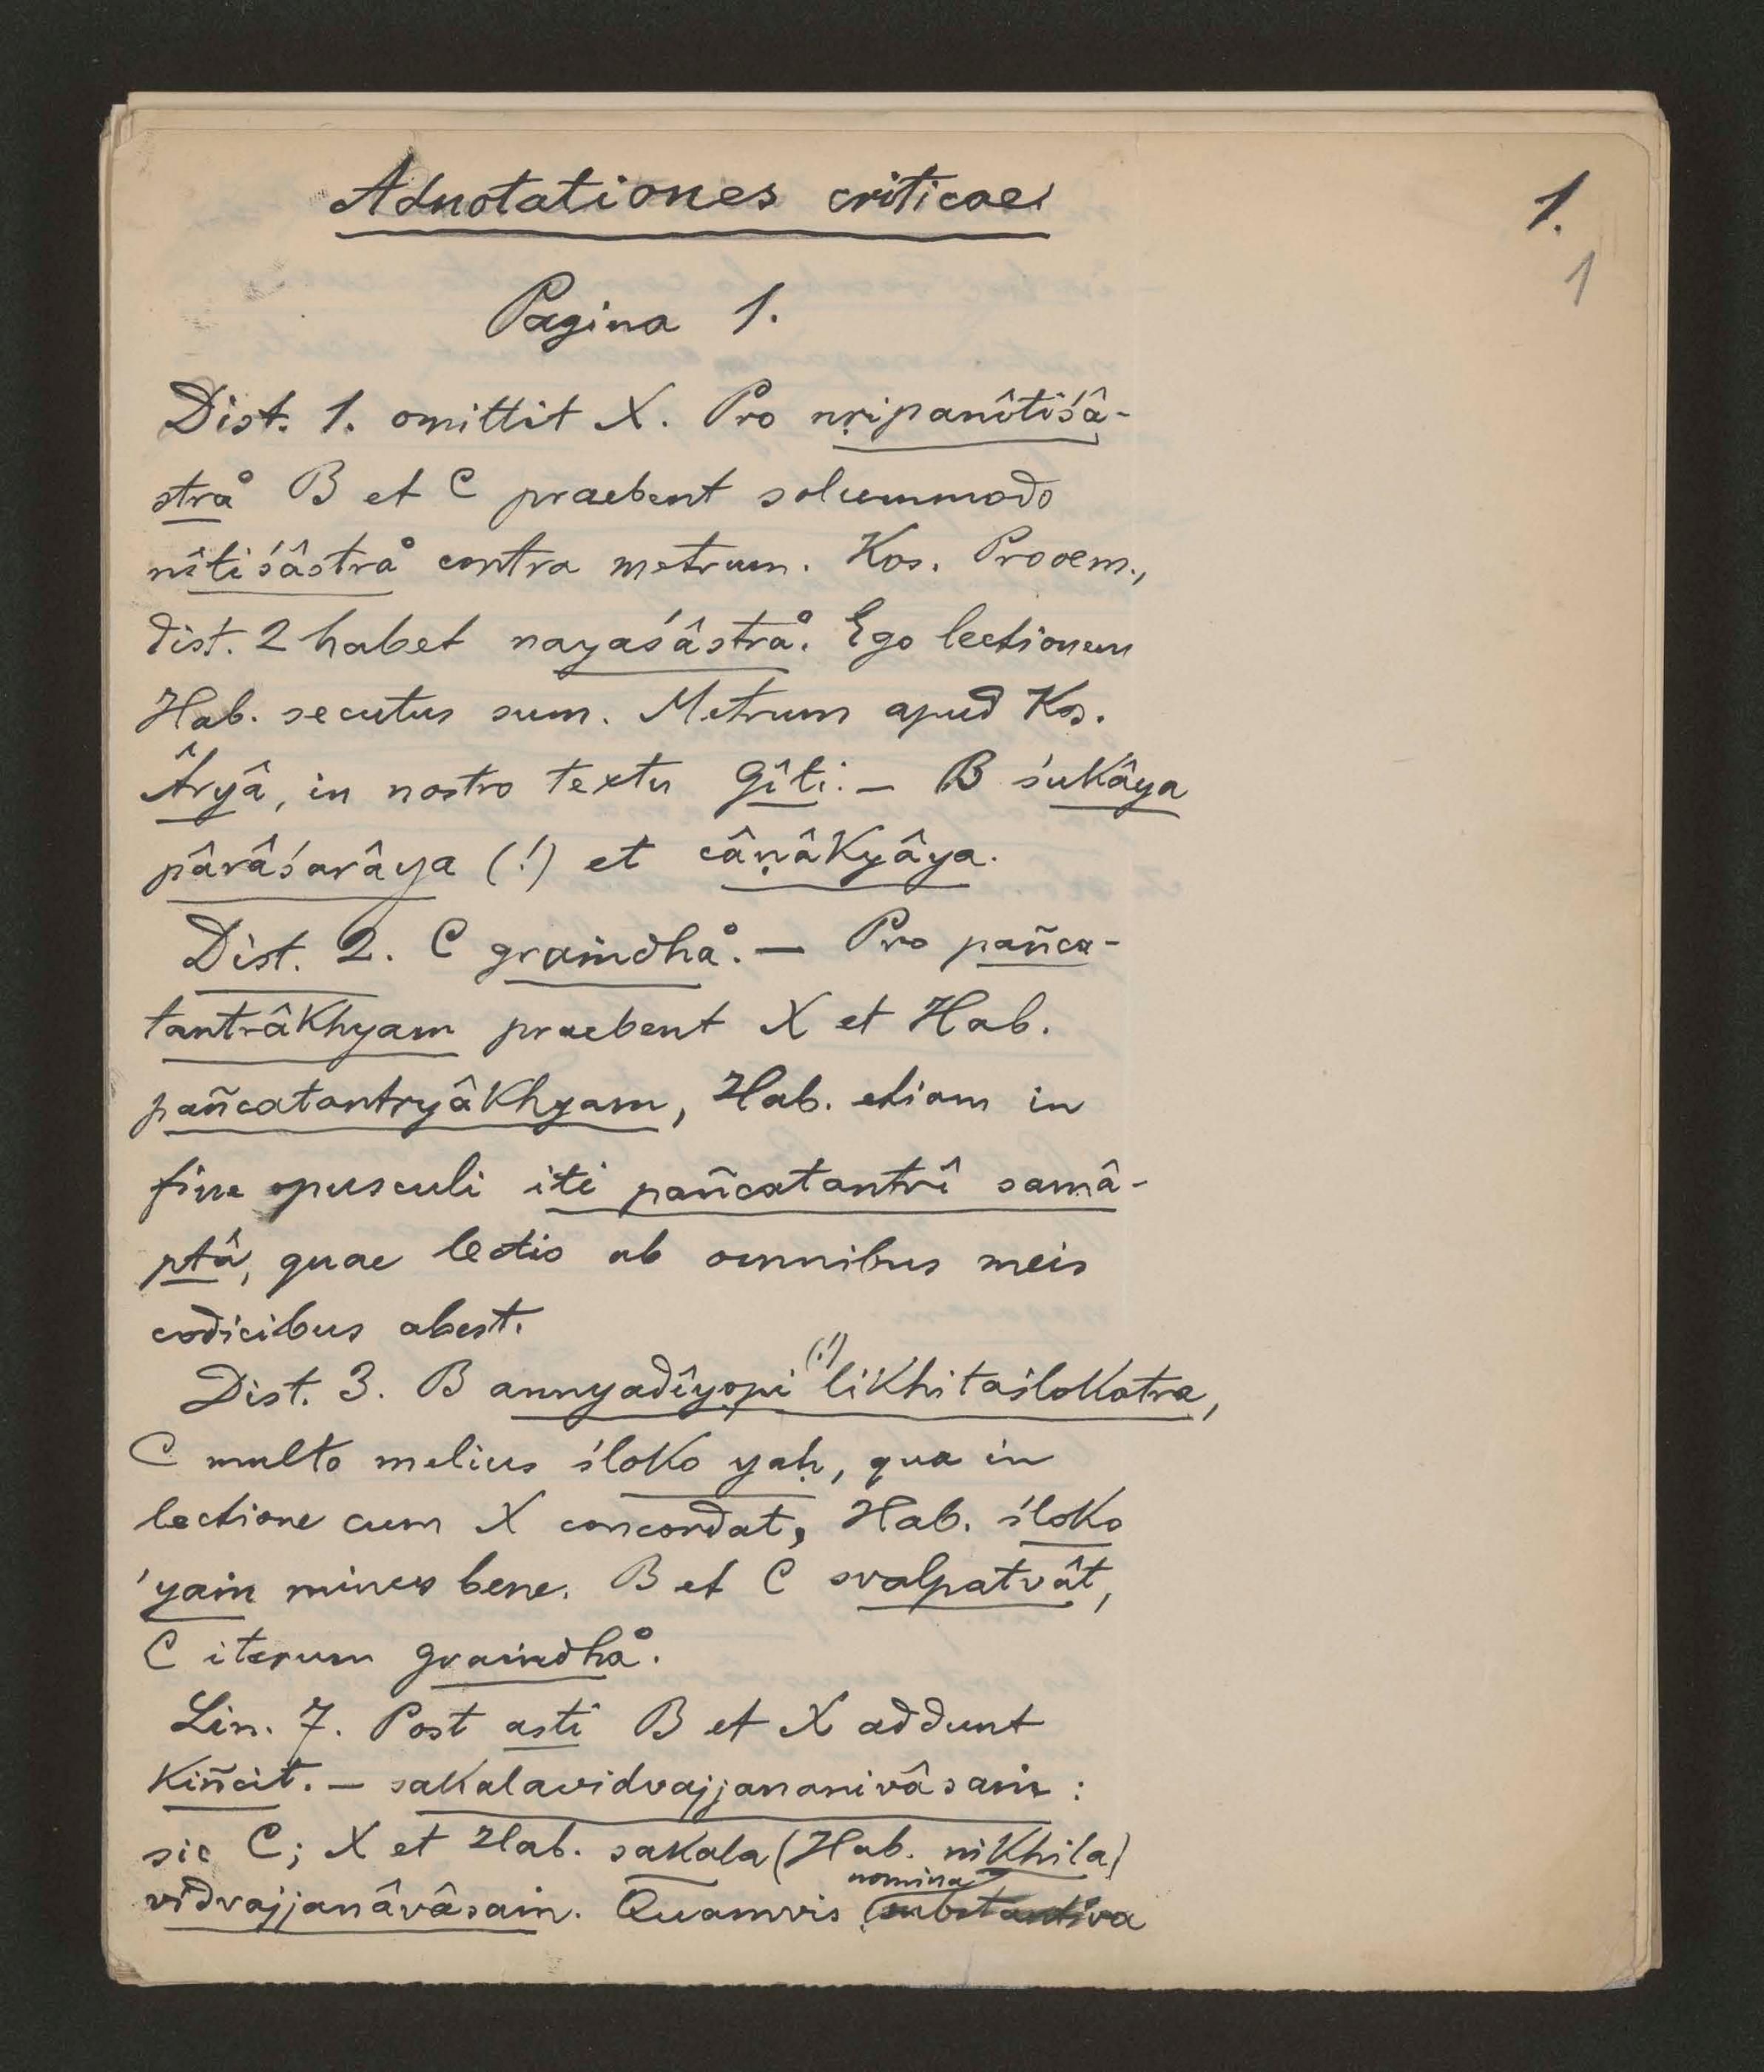 Adnotationes criticae.
1.
1
Pagina 1.
Dist. 1. omittit X. Pro nṛipanîtiśâ-
stra° B et C praebent solummodo
nîtiśâstra° contra metrum. Kos. Prooem.,
dist. 2 habet nayaśâstra°. Ego lectionem
Hab. secutus sum. Metrum apud Kos.
Âryâ, in nostro textu Gîti. — B śukâya
pârâśarâya (!) et câṇâkyâya.
Dist. 2. C graṁdha°. — Pro pañca-
tantrâkhyam praebent X et Hab.
pañcatantryâkhyam, Hab. etiam in
fine opusculi iti pañcatantrî samâ-
ptâ, quae lectio ab omnibus meis
codicibus abest.
Dist. 3. B annyadîyopi (!) likhitaślokatra,
C multo melius śloko yaḥ, qua in
lectione cum X concordat, Hab. śloko
'yaṁ minus bene. B et C svalpatvât,
C iterum graṁdha°.
Lin. 7. Post asti B et X addunt
kiñcit. — sakalavidvajjananivâsaṁ:
sic C; X et Hab. sakala (Hab. nikhila)
vidvajjanâvâsaṁ. Quamvis nomina substantiva